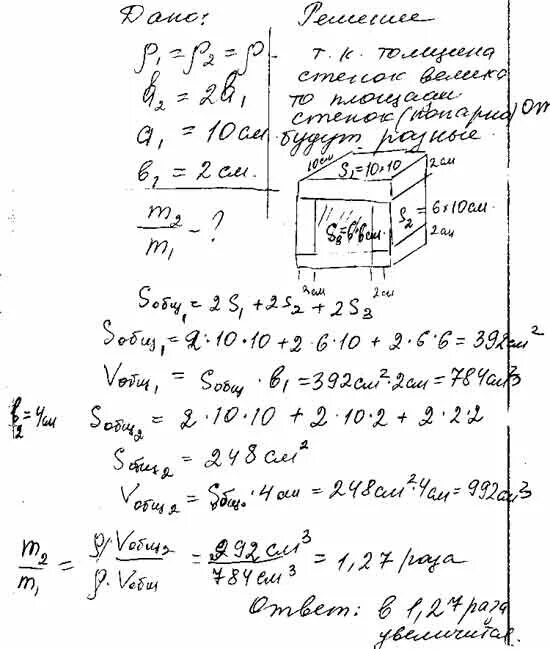 Дано:
Решение
ρ₁ = ρ₂ = ρ
т. к. толщина
стенок велика
b₂ = 2b₁
то площади
стенок (попарно)
a₁ = 10 см.
будут разные.
b₁ = 2 см.
m₂/m₁ - ?
10см
S₁ = 10×10
2см
S₂ = 6×10см.
S₃ = 6·6см.
2см
2см
2см
Sобщ₁ = 2S₁ + 2S₂ + 2S₃
Sобщ₁ = 2·10·10 + 2·6·10 + 2·6·6 = 392см²
Vобщ₁ = Sобщ · b₁ = 392см²·2см = 784см³
b₂ = 4см
Sобщ₂ = 2·10·10 + 2·10·2 + 2·2·2
Sобщ₂ = 248 см²
Vобщ₂ = Sобщ.·4см = 248см²·4см = 992см³
m₂/m₁ = ρ·Vобщ₂/ρ·Vобщ = 292см³/784см³ = 1,27 раза
Ответ: в 1,27 раза
увеличится.